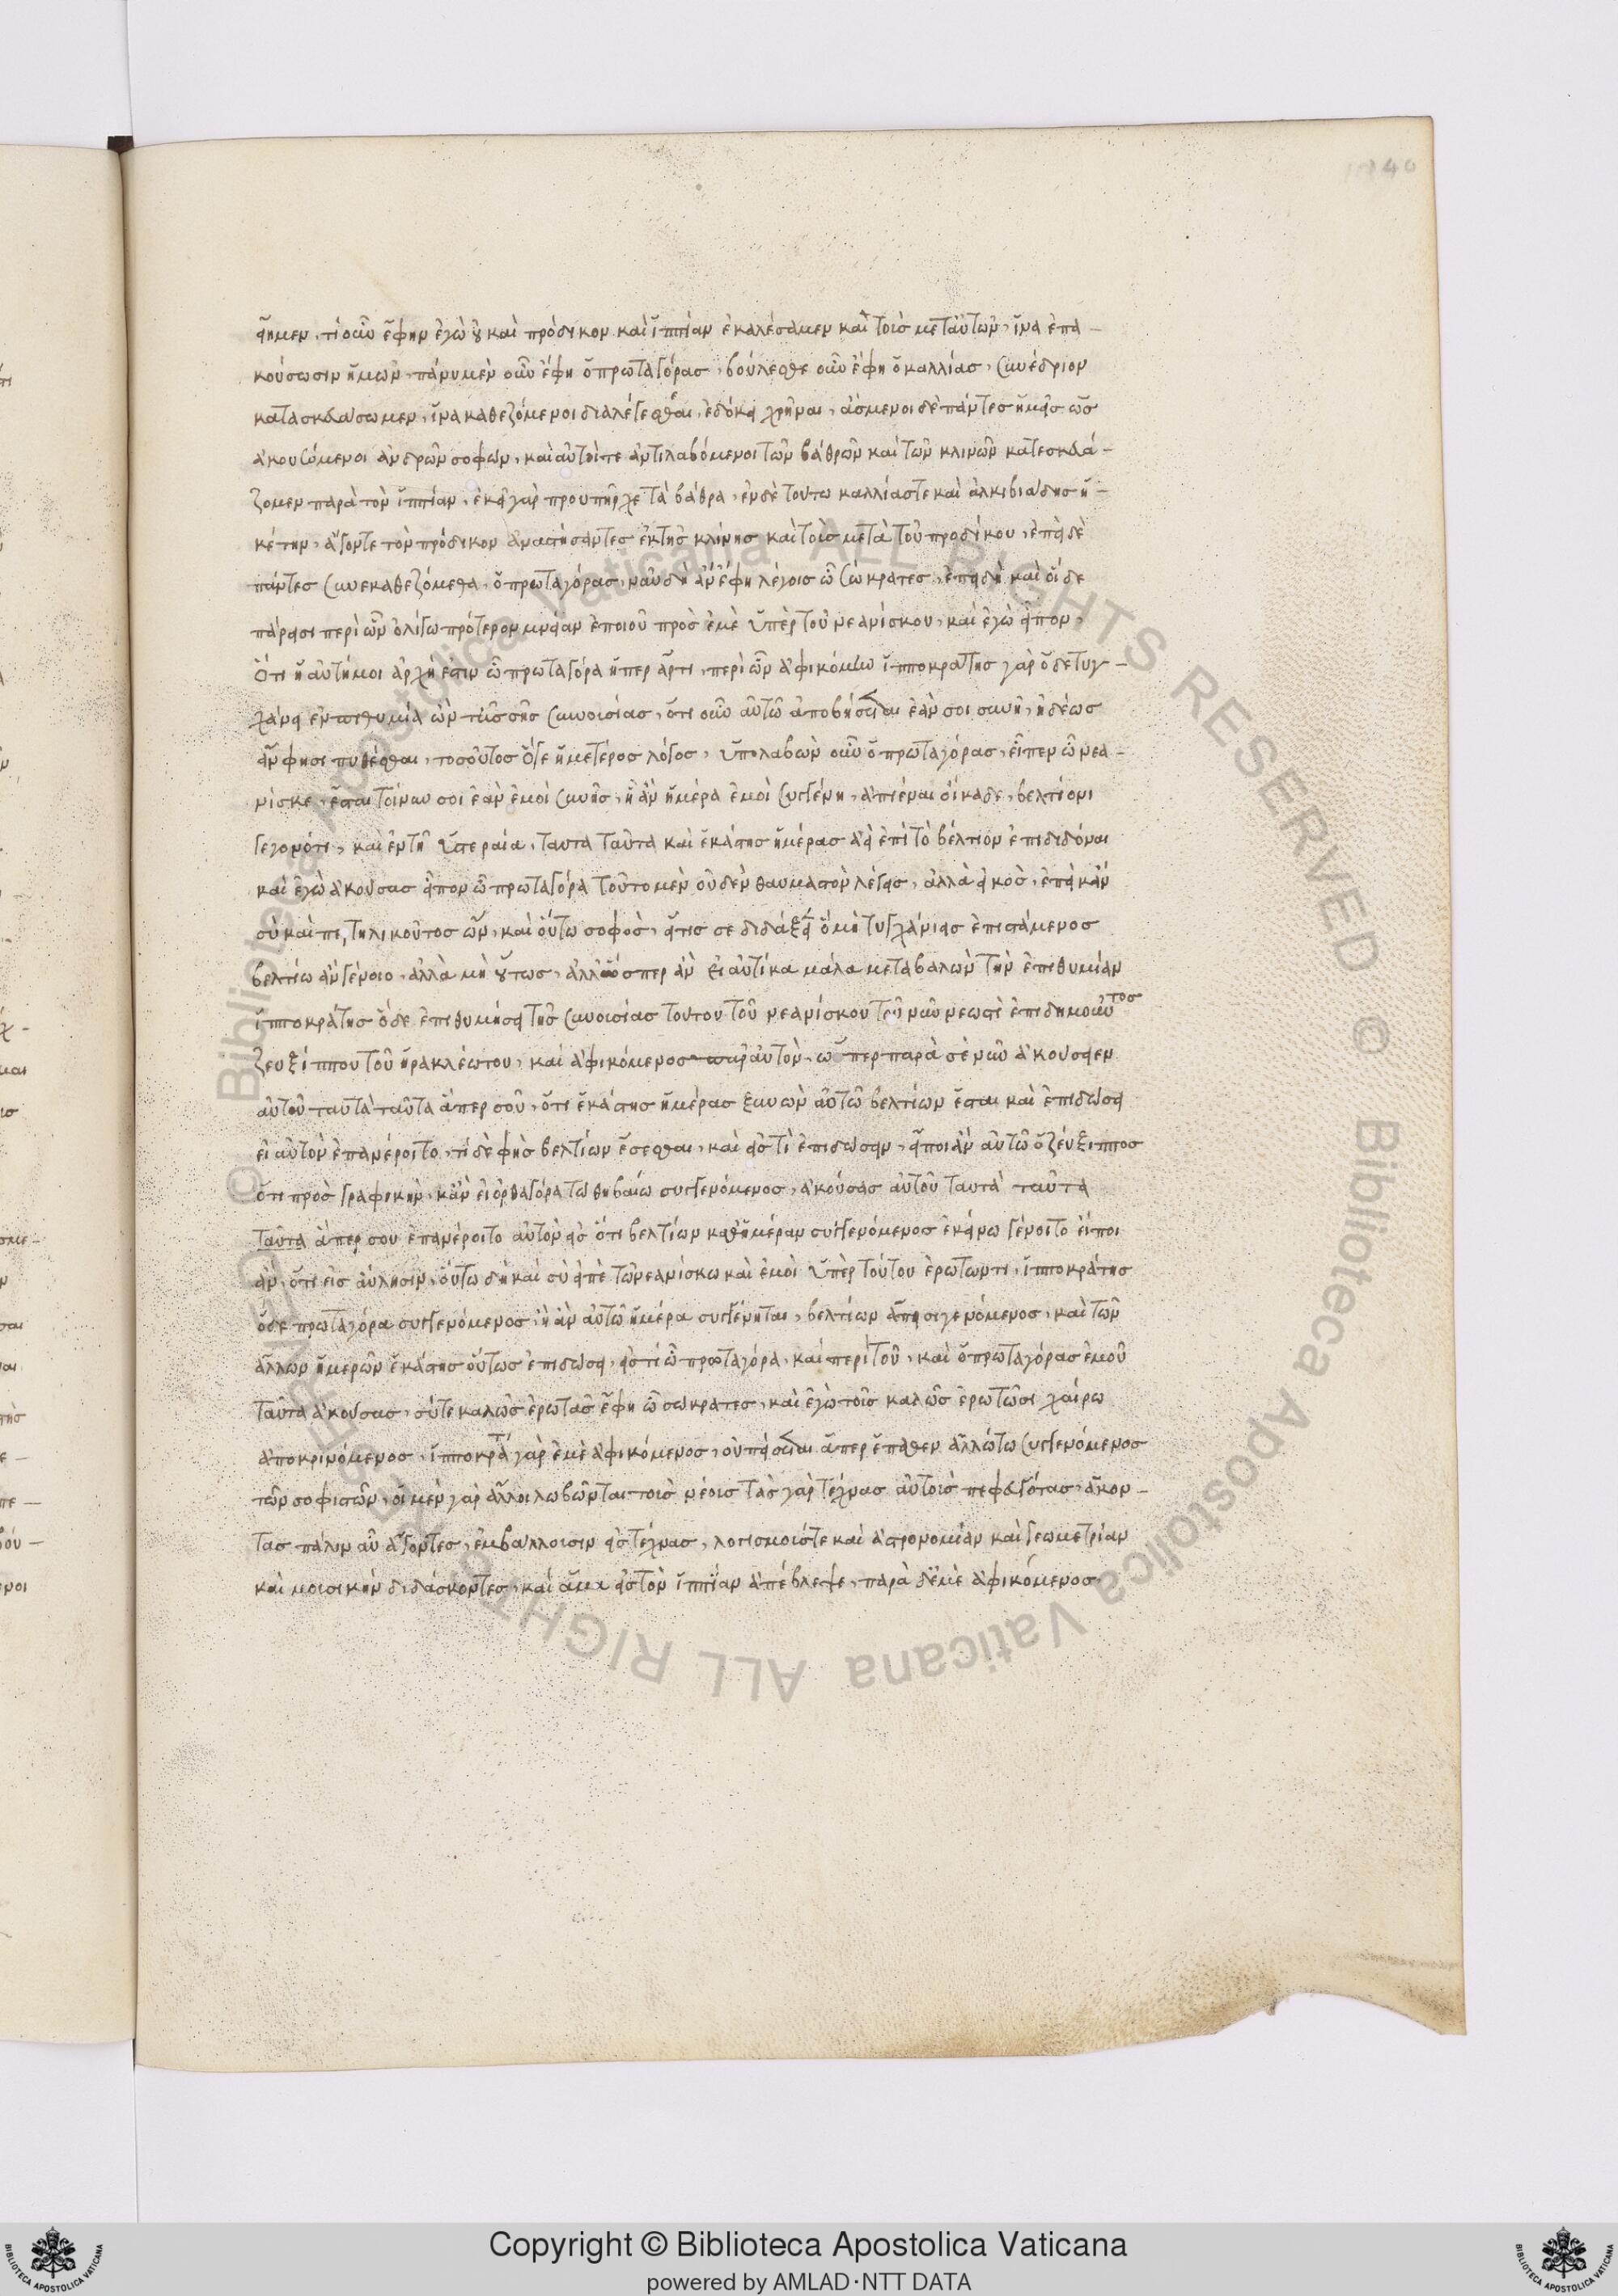 140
εἶημεν, τί οὖν ἔφην ἐγὼ οὐ καὶ πρόδικον καὶ ἱππίαν ἐκαλέσαμεν καὶ τοὺς μετ' αὐτῶν, ἵνα ἐπα-
κούσωσιν ἡμῶν, πάνυ μὲν οὖν ἔφη ὁ πρωταγόρας, βούλεσθε οὖν ἔφη ὁ καλλίας, συνέδριον
κατασκευάσωμεν, ἵνα καθεζόμενοι διαλέγεσθαι, ἐδόκει χρῆναι, ἄσμενοι δὲ πάντες ἡμεῖς ὡς
ἀκουσόμενοι ἀνδρῶν σοφῶν, καὶ αὐτοί τε ἀντιλαβόμενοι τῶν βάθρων καὶ τῶν κλινῶν κατεσκευά-
ζομεν παρὰ τὸν ἱππίαν, ἐκεῖ γὰρ προυπῆρχε τὰ βάθρα, ἐν δὲ τούτω καλλίας τε καὶ ἀλκιβιάδης ἡ-
κέτην, ἄγοντε τὸν πρόδικον ἀναστήσαντες ἐκ τῆς κλίνης καὶ τοὺς μετὰ τοῦ προδίκου, ἐπεὶ δὲ
πάντες συνεκαθεζόμεθα, ὁ πρωταγόρας, νῦν δὴ ἂν ἔφη λέγοις ὦ σώκρατες, ἐπειδὴ καὶ οἵδε
πάρεισι περὶ ὧν ὀλίγω πρότερον μνείαν ἐποιοῦ πρὸς ἐμὲ ὑπὲρ τοῦ νεανίσκου, καὶ ἐγὼ εἶπον,
ὅτι ἡ αὐτή μοι ἀρχή ἐστιν ὦ πρωταγόρα ἥπερ ἄρτι, περὶ ὧν ἀφικόμην ἱπποκράτης γὰρ ὅδε τυγ-
χάνει ἐν ἐπιθυμία ὢν τῆς σῆς συνουσίας, ὅτι οὖν αὐτῶ ἀποβήσεται ἐάν σοι συνῆ, ἡδέως
ἄν φησι πυθέσθαι, τοσοῦτος ὅ γε ἡμέτερος λόγος, ὑπολαβὼν οὖν ὁ πρωταγόρας, εἶπεν ὦ νεα-
νίσκε, ἔσται τοίνυν σοι ἐὰν ἐμοὶ συνῆς, ἧ ἂν ἡμέρα ἐμοὶ συγγένη, ἀπιέναι οἴκαδε, βελτίονι
γεγονότι, καὶ ἐν τῆ ὑστεραία, ταυτα ταῦτα καὶ ἑκάστης ἡμέρας ἀεὶ ἐπὶ τὸ βέλτιον ἐπιδιδόναι
καὶ ἐγὼ ἀκούσας εἶπον ὦ πρωταγόρα τοῦτο μὲν οὐδὲν θαυμαστὸν λέγεις, ἀλλὰ εἰκὸς, ἐπεὶ κἂν
σὺ καίπερ τηλικοῦτος ὢν, καὶ οὕτω σοφὸς, εἴ τις σε διδάξει ὃ μὴ τυγχάνεις ἐπιστάμενος
βελτίω ἂν γένοιο, ἀλλὰ μὴ οὕτως, ἀλλ' ὥσπερ ἂν εἰ αὐτίκα μάλα μεταβαλὼν τὴν ἐπιθυμίαν
ἱπποκράτης ὅδε ἐπιθυμήσει τῆς συνουσίας τούτου τοῦ νεανίσκου τοῦ νῦν νεωστὶ ἐπιδημοῦντος
ζευξίππου τοῦ ἡρακλεώτου, καὶ ἀφικόμενος παρ' αὐτὸν, ὥσπερ παρὰ σὲ νῦν ἀκούσειεν
αὐτοῦ ταυτὰ ταῦτα ἅπερ σοῦ, ὅτι ἑκάστης ἡμέρας ξυνὼν αὐτῶ βελτίων ἔσται καὶ ἐπιδώσει
εἰ αὐτὸν ἐπανέροιτο, τί δὲ φὴς βελτίων ἔσεσθαι, καὶ εἰς τὶ ἐπιδώσειν, εἴποι ἂν αὐτῶ ὁ ζεύξιππος
ὅτι πρὸς γραφικὴν, κἂν εἰ ὀρθαγόρα τῶ θηβαίω συγγενόμενος, ἀκούσας αὐτοῦ ταυτὰ ταῦτα
ταῦτα ἅπερ σου ἐπανέροιτο αὐτὸν εἰς ὅτι βελτίων καθ' ἡμέραν συγγενόμενος ἐκείνω γένοιτο εἴποι
ἂν, ὅτι εἰς αὔλησιν, οὕτω δὴ καὶ σὺ εἰπὲ τῶ νεανίσκω καὶ ἐμοὶ ὑπὲρ τούτου ἐρωτῶντι, ἱπποκράτης
ὅδε πρωταγόρα συγγενόμενος, ἧ ἂν αὐτῶ ἡμέρα συγγένηται, βελτίων ἄπεισι γενόμενος, καὶ τῶν
ἄλλων ἡμερῶν ἑκάστης οὕτως ἐπιδώσει, εἰς τί ὦ πρωταγόρα, καὶ περὶ τοῦ, καὶ ὁ πρωταγόρας ἐμοῦ
ταῦτα ἀκούσας, σύ τε καλῶς ἐρωτᾶς ἔφη ὦ σώκρατες, καὶ ἐγὼ τοῖς καλῶς ἐρωτῶσι χαίρω
ἀποκρινόμενος, ἱπποκράτης γὰρ ἐμὲ ἀφικόμενος, οὐ πείσεται ἅπερ ἔπαθεν ἄλλω τω συγγενόμενος
τῶν σοφιστῶν, οἱ μὲν γὰρ ἄλλοι λωβῶνται τοὺς νέους τὰς γὰρ τέχνας αὐτοὺς πεφευγότας, ἄκον-
τας πάλιν αὖ ἄγοντες, ἐμβάλλουσιν εἰς τέχνας, λογισμούς τε καὶ ἀστρονομίαν καὶ γεωμετρίαν
καὶ μουσικὴν διδάσκοντες, καὶ ἅμα εἰς τὸν ἱππίαν ἀπέβλεψε, παρὰ δ' ἐμὲ ἀφικόμενος
Copyright © Biblioteca Apostolica Vaticana
powered by AMLAD·NTT DATA